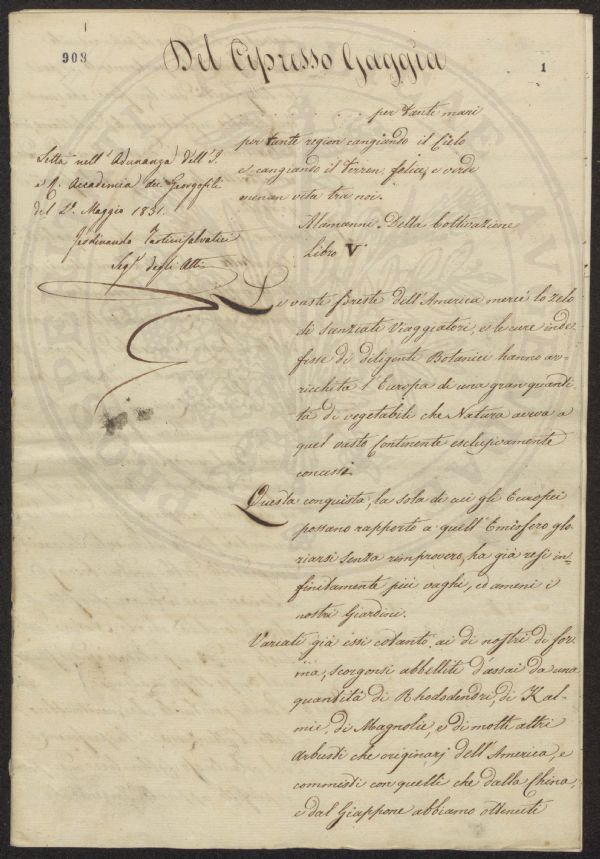 908
1
Del Cipresso Gaggia
per tante mari
per tante region cangiando il Cielo
e cangiando il terren, felice, e verde
menan vita tra noi.
Alamanni Della Coltivazione
Libro V
Letta nell' Adunanza dell' I.
e R. Accademia dei Georgofili
del 1831
Ferdinando Tartini Salvatici
Seg.º degli Atti
Le vaste foreste dell'America mercè lo zelo
di scenziati Viaggiatori, e le cure inde=
fesse di diligenti Botanici hanno ar=
ricchita l'Europa di una gran quanti=
tà di vegetabili che Natura aveva a
quel vasto Continente esclusivamente
concessi.
Questa conquista, la sola di cui gli Europei
possano rapporto a quell'Emisfero glo=
riarsi senza rimprovero, ha già resi in=
finitamente più vaghi, ed ameni i
nostri Giardini.
Variati già essi cotanto ai dì nostri di for=
ma, scorgonsi abbelliti d'assai da una
quantità di Rhododendri, di Kal=
mie, di Magnolie, e di molti altri
Arbusti che originarj dell'America, e
commisti con quelli che dalla China,
e dal Giappone abbiamo ottenuti